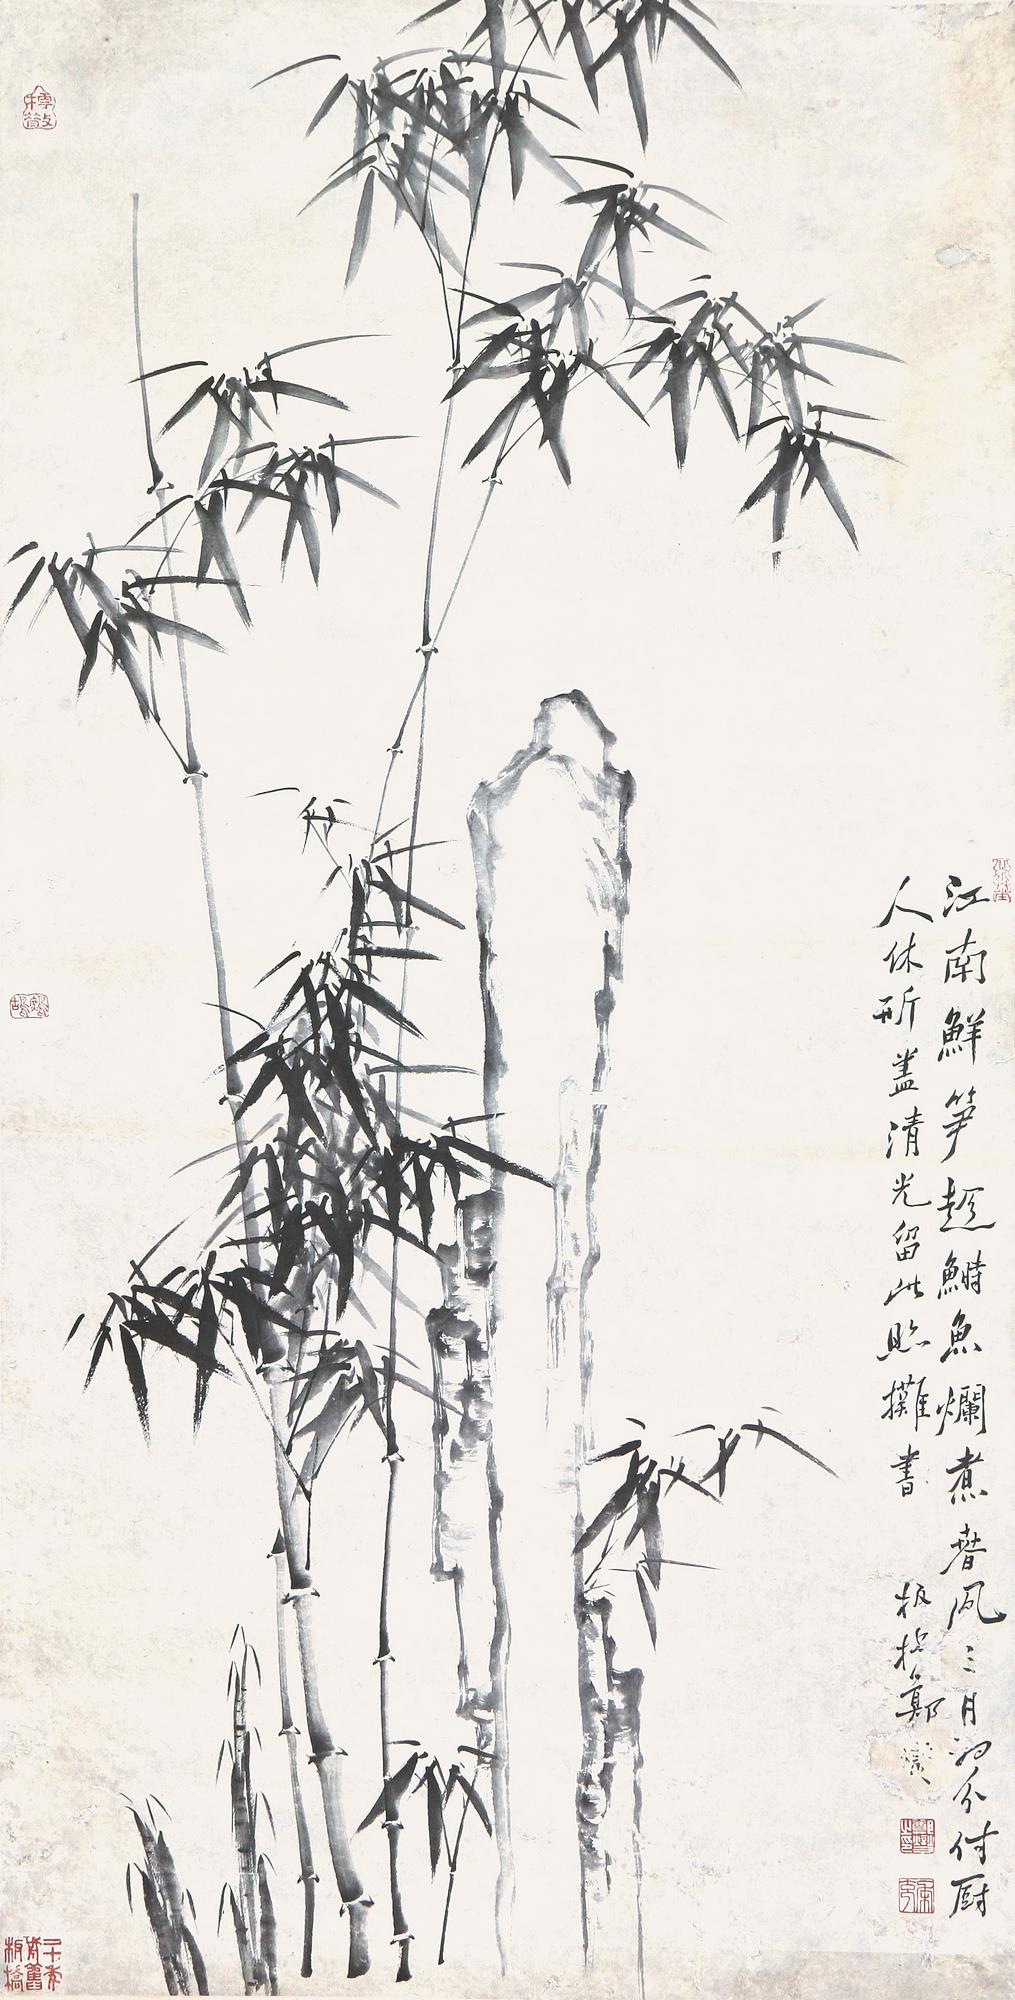 江南鮮筍趂鰣魚爛煮春風三月初分付厨
人休斫盡清光留此照攤書
板橋鄭燮